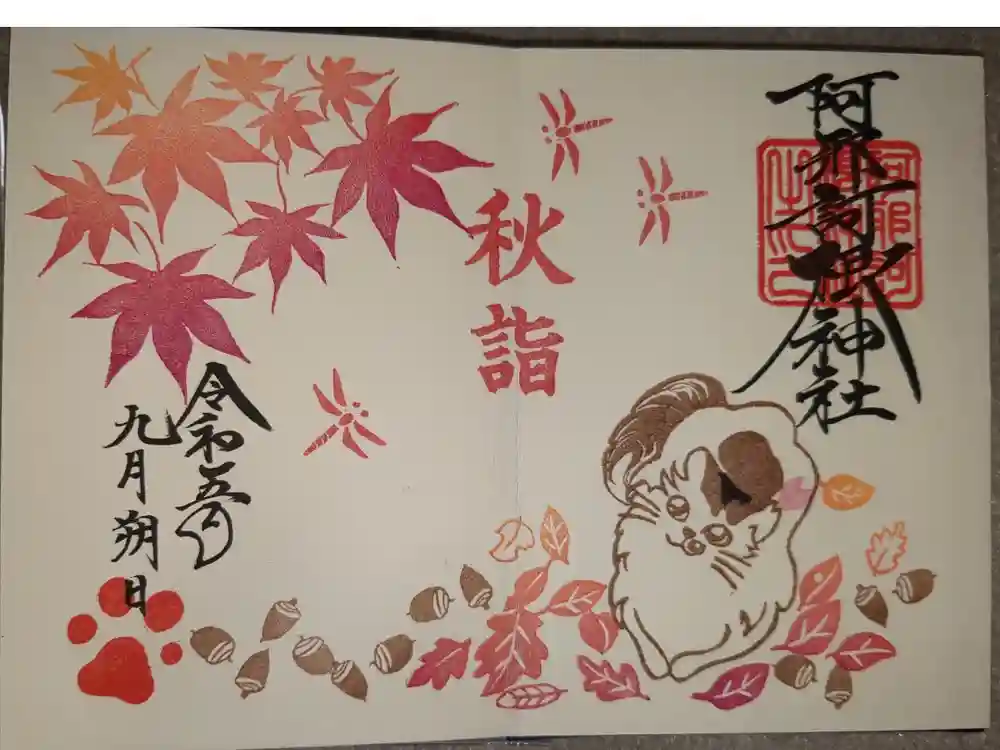 阿那訶根神社
秋詣
令和五年
九月朔日